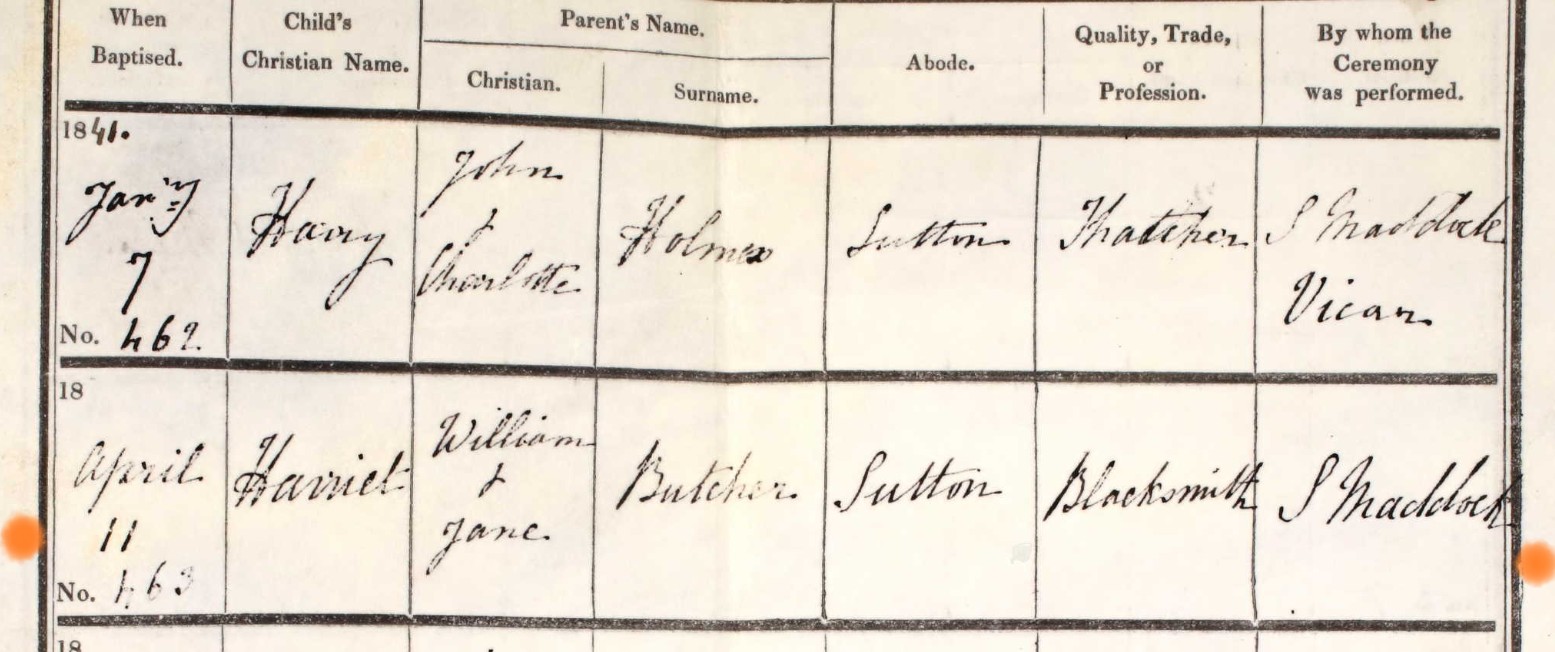 When Baptised.
Child's Christian Name.
Parent's Name.
Christian.
Surname.
Abode.
Quality, Trade, or Profession.
By whom the Ceremony was performed.
1841.
Jan'y
7
No. 462.
Harry
John
&
Charlotte
Holmes
Sutton
Thatcher
S Maddock
Vicar
18
April
11
No. 463
Harriet
William
&
Jane
Butcher
Sutton
Blacksmith
S Maddock
18